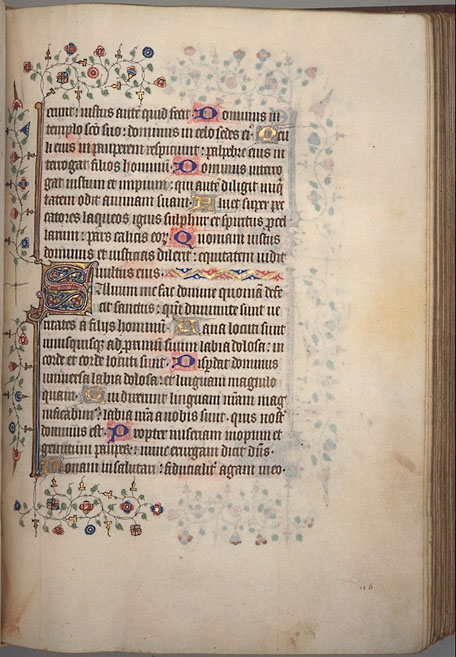 erunt: iustus aute quid fecit Dominus in
templo sco suo: dominus in celo sedes ei9 Ocu
li eius in pauperem respiciunt: palpebre eius in
terrogat filios hominum Dominus interro
gat iustum et impium: qui aute diligit iniq
tatem odit animam suam Pluet super pec
catores laqueos ignis sulphur et spiritus pcel
larum: pars calicis eor Quoniam iustus
dominus et iusticias dilexit: equitatem uidit
uultus eius.
Saluum me fac domine quoniam defe
cit sanctus: qm diminute sunt ue
ritates a filiis hominum Uana locuti sunt
unusquisq ad proximum suum labia dolosa: in
corde et corde locuti sunt. Disperdat dominus
uniuersa labia dolosa: et linguam magnilo
quam. Qui dixerunt linguam nram mag
nificabim9: labia nra a nobis sunt. quis nost
dominus est. Propter miseriam inopum et
gemitum pauperum: nunc exurgam dicit dns.
Ponam in salutari: fiducialit agam in eo.